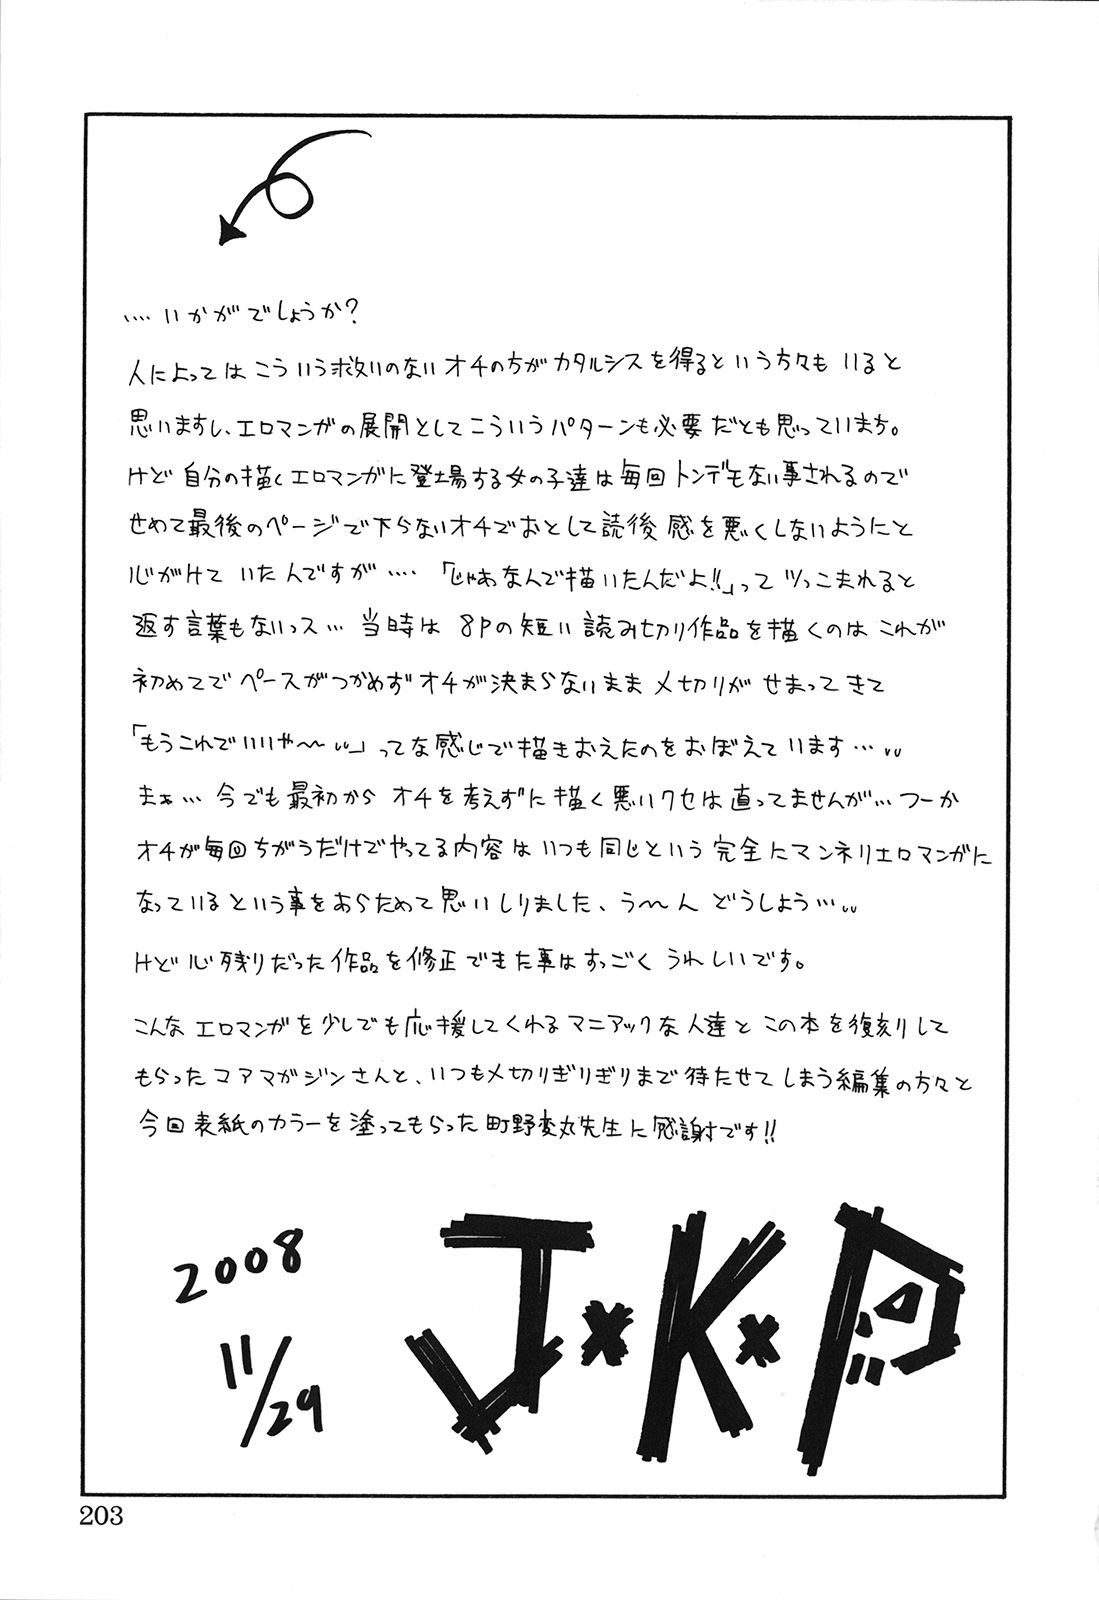 ‥‥いかがでしょうか?
人によってはこういう救いのないオチの方がカタルシスを得るという方々もいると
思いますし、エロマンガの展開としてこういうパターンも必要だとも思っています。
けど自分の描くエロマンガに登場する女の子達は毎回トンデモない事されるので
せめて最後のページで下らないオチでおとして読後感を悪くしないようにと
心がけていたんですが‥‥「じゃあなんで描いたんだよ!!」ってツっこまれると
返す言葉もないっス…当時は8Pの短い読み切り作品を描くのはこれが
初めてでペースがつかめずオチが決まらないまま〆切りがせまってきて
「もうこれでいいや〜〜」ってな感じで描きおえたのをおぼえています…
まぁ…今でも最初からオチを考えずに描く悪いクセは直ってませんが…つーか
オチが毎回ちがうだけでやってる内容はいつも同じという完全にマンネリエロマンガに
なっているという事をあらためて思いしりました、う〜〜んどうしよう…
けど心残りだった作品を修正できた事はすっごくうれしいです。
こんなエロマンガを少しでも応援してくれるマニアックな人達とこの本を復刻して
もらったコアマガジンさんと、いつも〆切りぎりぎりまで待たせてしまう編集の方々と
今回表紙のカラーを塗ってもらった町野変丸先生に感謝です!!
2008
11/29
J×K×P
203